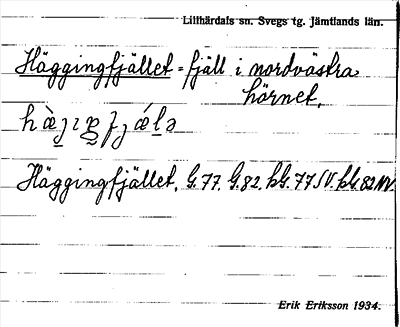 Lillhärdals sn. Svegs tg. Jämtlands län.
Häggingfjället = fjäll i nordvästra
hörnet.
Häggingfjället, G. 77. G. 82. hG. 77 SV. hG. 82 NV.
Erik Eriksson 1934.